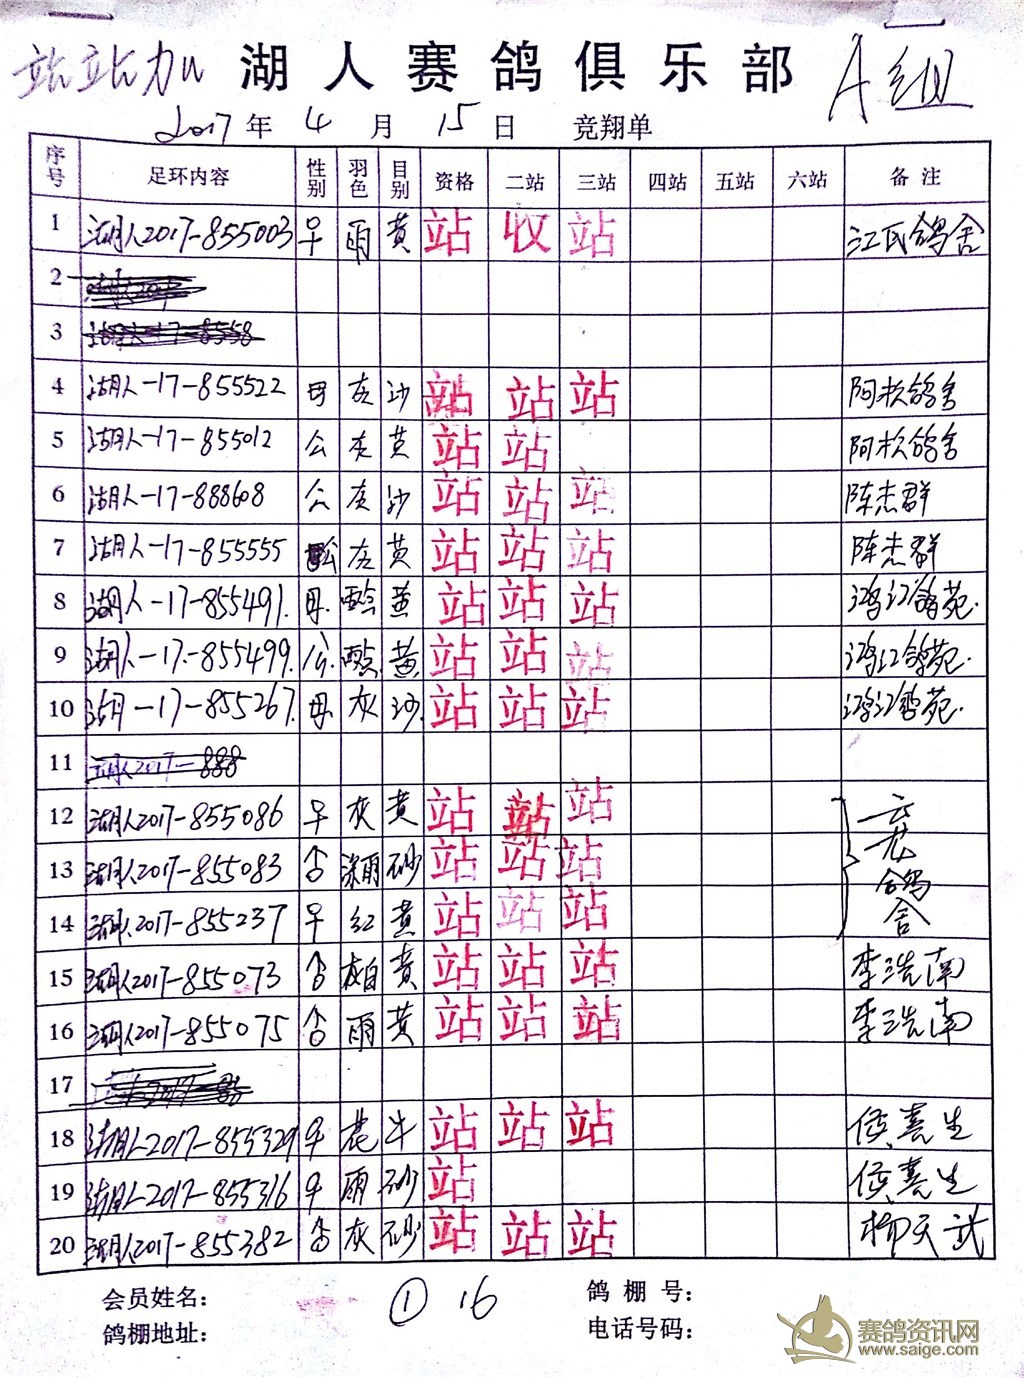 站站加 湖人赛鸽俱乐部 A组
2017年 4月 15日 竞翔单
序号 足环内容 性别 羽色 目别 资格 二站 三站 四站 五站 六站 备注
1 湖人2017-855003 早 雨 黄 站 收 站 江氏鸽舍
2
3 湖人-17-8558
4 湖人-17-855522 母 灰 沙 站 站 站 阿松鸽舍
5 湖人-17-855012 公 灰 黄 站 站 阿松鸽舍
6 湖人-17-888608 公 灰 沙 站 站 站 陈志群
7 湖人-17-855555 公 灰 黄 站 站 站 陈志群
8 湖人-17-855491. 母. 黄 站 站 站 鸿江鸽苑.
9 湖人-17-855499. 公. 黄 站 站 站 鸿江鸽苑.
10 湖人-17-855267. 母. 灰 沙. 站 站 站 鸿江鸽苑.
11 湖人2017-888
12 湖人2017-855086 早 灰 黄 站 站 站 云龙鸽舍
13 湖人2017-855083 深雨 砂 站 站 站
14 湖人2017-855237 早 红 黄 站 站 站
15 湖人2017-855073 灰白 黄 站 站 站 李浩南
16 湖人2017-855075 雨 黄 站 站 站 李浩南
17
18 湖人2017-855329 花 牛 站 站 站 侯嘉生
19 湖人2017-855316 雨 砂 站 侯嘉生
20 湖人2017-855382 灰 砂 站 站 站 柳天武
会员姓名： ① 16 鸽棚号：
鸽棚地址： 电话号码：
赛鸽资讯网
www.saige.com